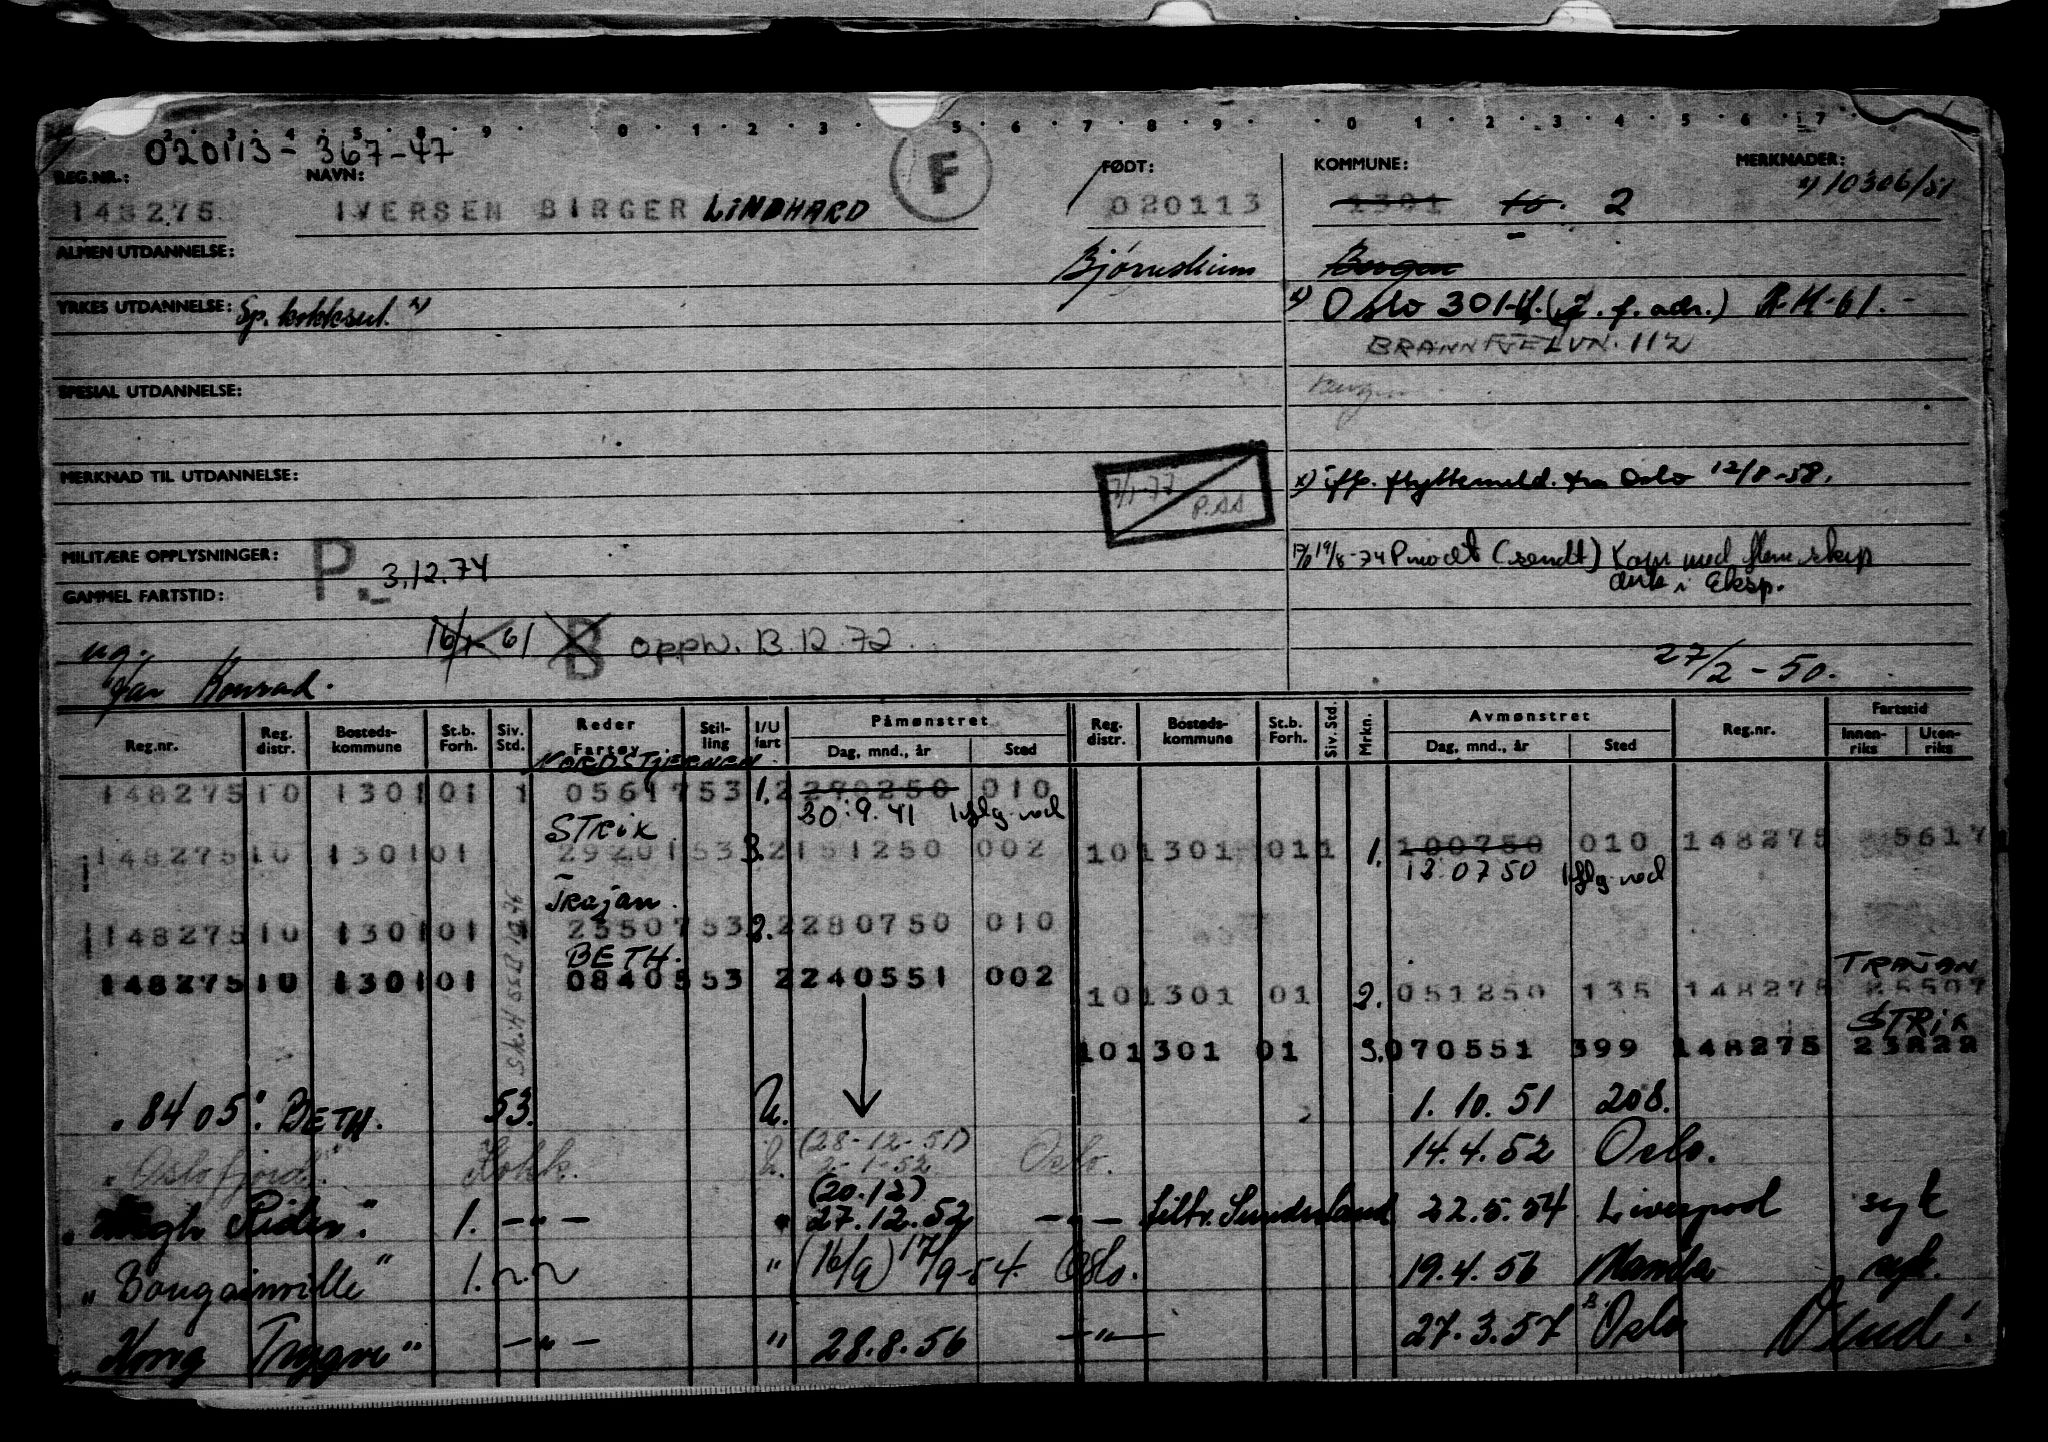 2 3 4 5 8 9 0 1 2 3 5 6 7 8 9 0 1 2 3 4 5 6 7
020113 - 367-47
REG.NR.: NAVN: F FØDT: KOMMUNE: MERKNADER:
148275 IVERSEN BIRGER LINDHARD 020113 1301 10. 2 x) 10306/51
ALMEN UTDANNELSE: Bjørnskinn Bergen
YRKES UTDANNELSE: Sp. kokksert. x) x) Oslo 301-H. (f. adr.) R-H-61.-
BRANNFJELVN. 112
SPESIAL UTDANNELSE: Bergen
MERKNAD TIL UTDANNELSE: 7/1-77 P.AA x) iflg. flyttemeld. fra Oslo 12/8-58.
MILITÆRE OPPLYSNINGER: P. 3.12.74 19/8-74 P modt (sendt) Kom med flere skip
GAMMEL FARTSTID: i Eksp.
ug. 16/1-61 B oppw. 13.12.72
Jan Konrad. 27/2-50.
Reg.nr. Reg. distr. Bosteds-kommune St.b. Forh. Siv. Std. Reder Fartøy Stil-ling I/U fart Påmønstret Dag, mnd., år Sted Reg. distr. Bosteds-kommune St.b. Forh. Siv. Std. Mrkn. Avmønstret Dag, mnd., år Sted Reg.nr. Fartstid Innen-riks Uten-riks
NORDSTJERNEN
148275 10 1301 01 1 05617 53 1. 2 270250 010
30.9.41 iflg. rod
STRIX
148275 10 1301 01 29201 53 3. 2 151250 002 10 1301 01 1 1. 100750 010 148275 5617
13.0750 iflg. rod
Trajan.
148275 10 1301 01 1 25507 53 2. 2 280750 010
BETH. TRAJAN
148275 10 1301 01 08405 53 2 240551 002 10 1301 01 2. 051250 135 148275 25507
STRIX
10 1301 01 3. 070551 399 148275 23822
"8405" BETH. 53. U. 1. 10. 51 208.
"Oslofjord" Kokk. U. (28-12-51) 2-1-52 Oslo. 14. 4. 52 Oslo.
(20.12)
1. -"- " 27.12.52 -"- Sunderland 22. 5. 54 Liverpool syk
"Bougainville" 1. " (16/9) 17/9-54. Oslo. 19. 4. 56 Manila syk.
"Kong Trygve" -"- " 28.8.56 -"- 27. 3. 57 Oslo